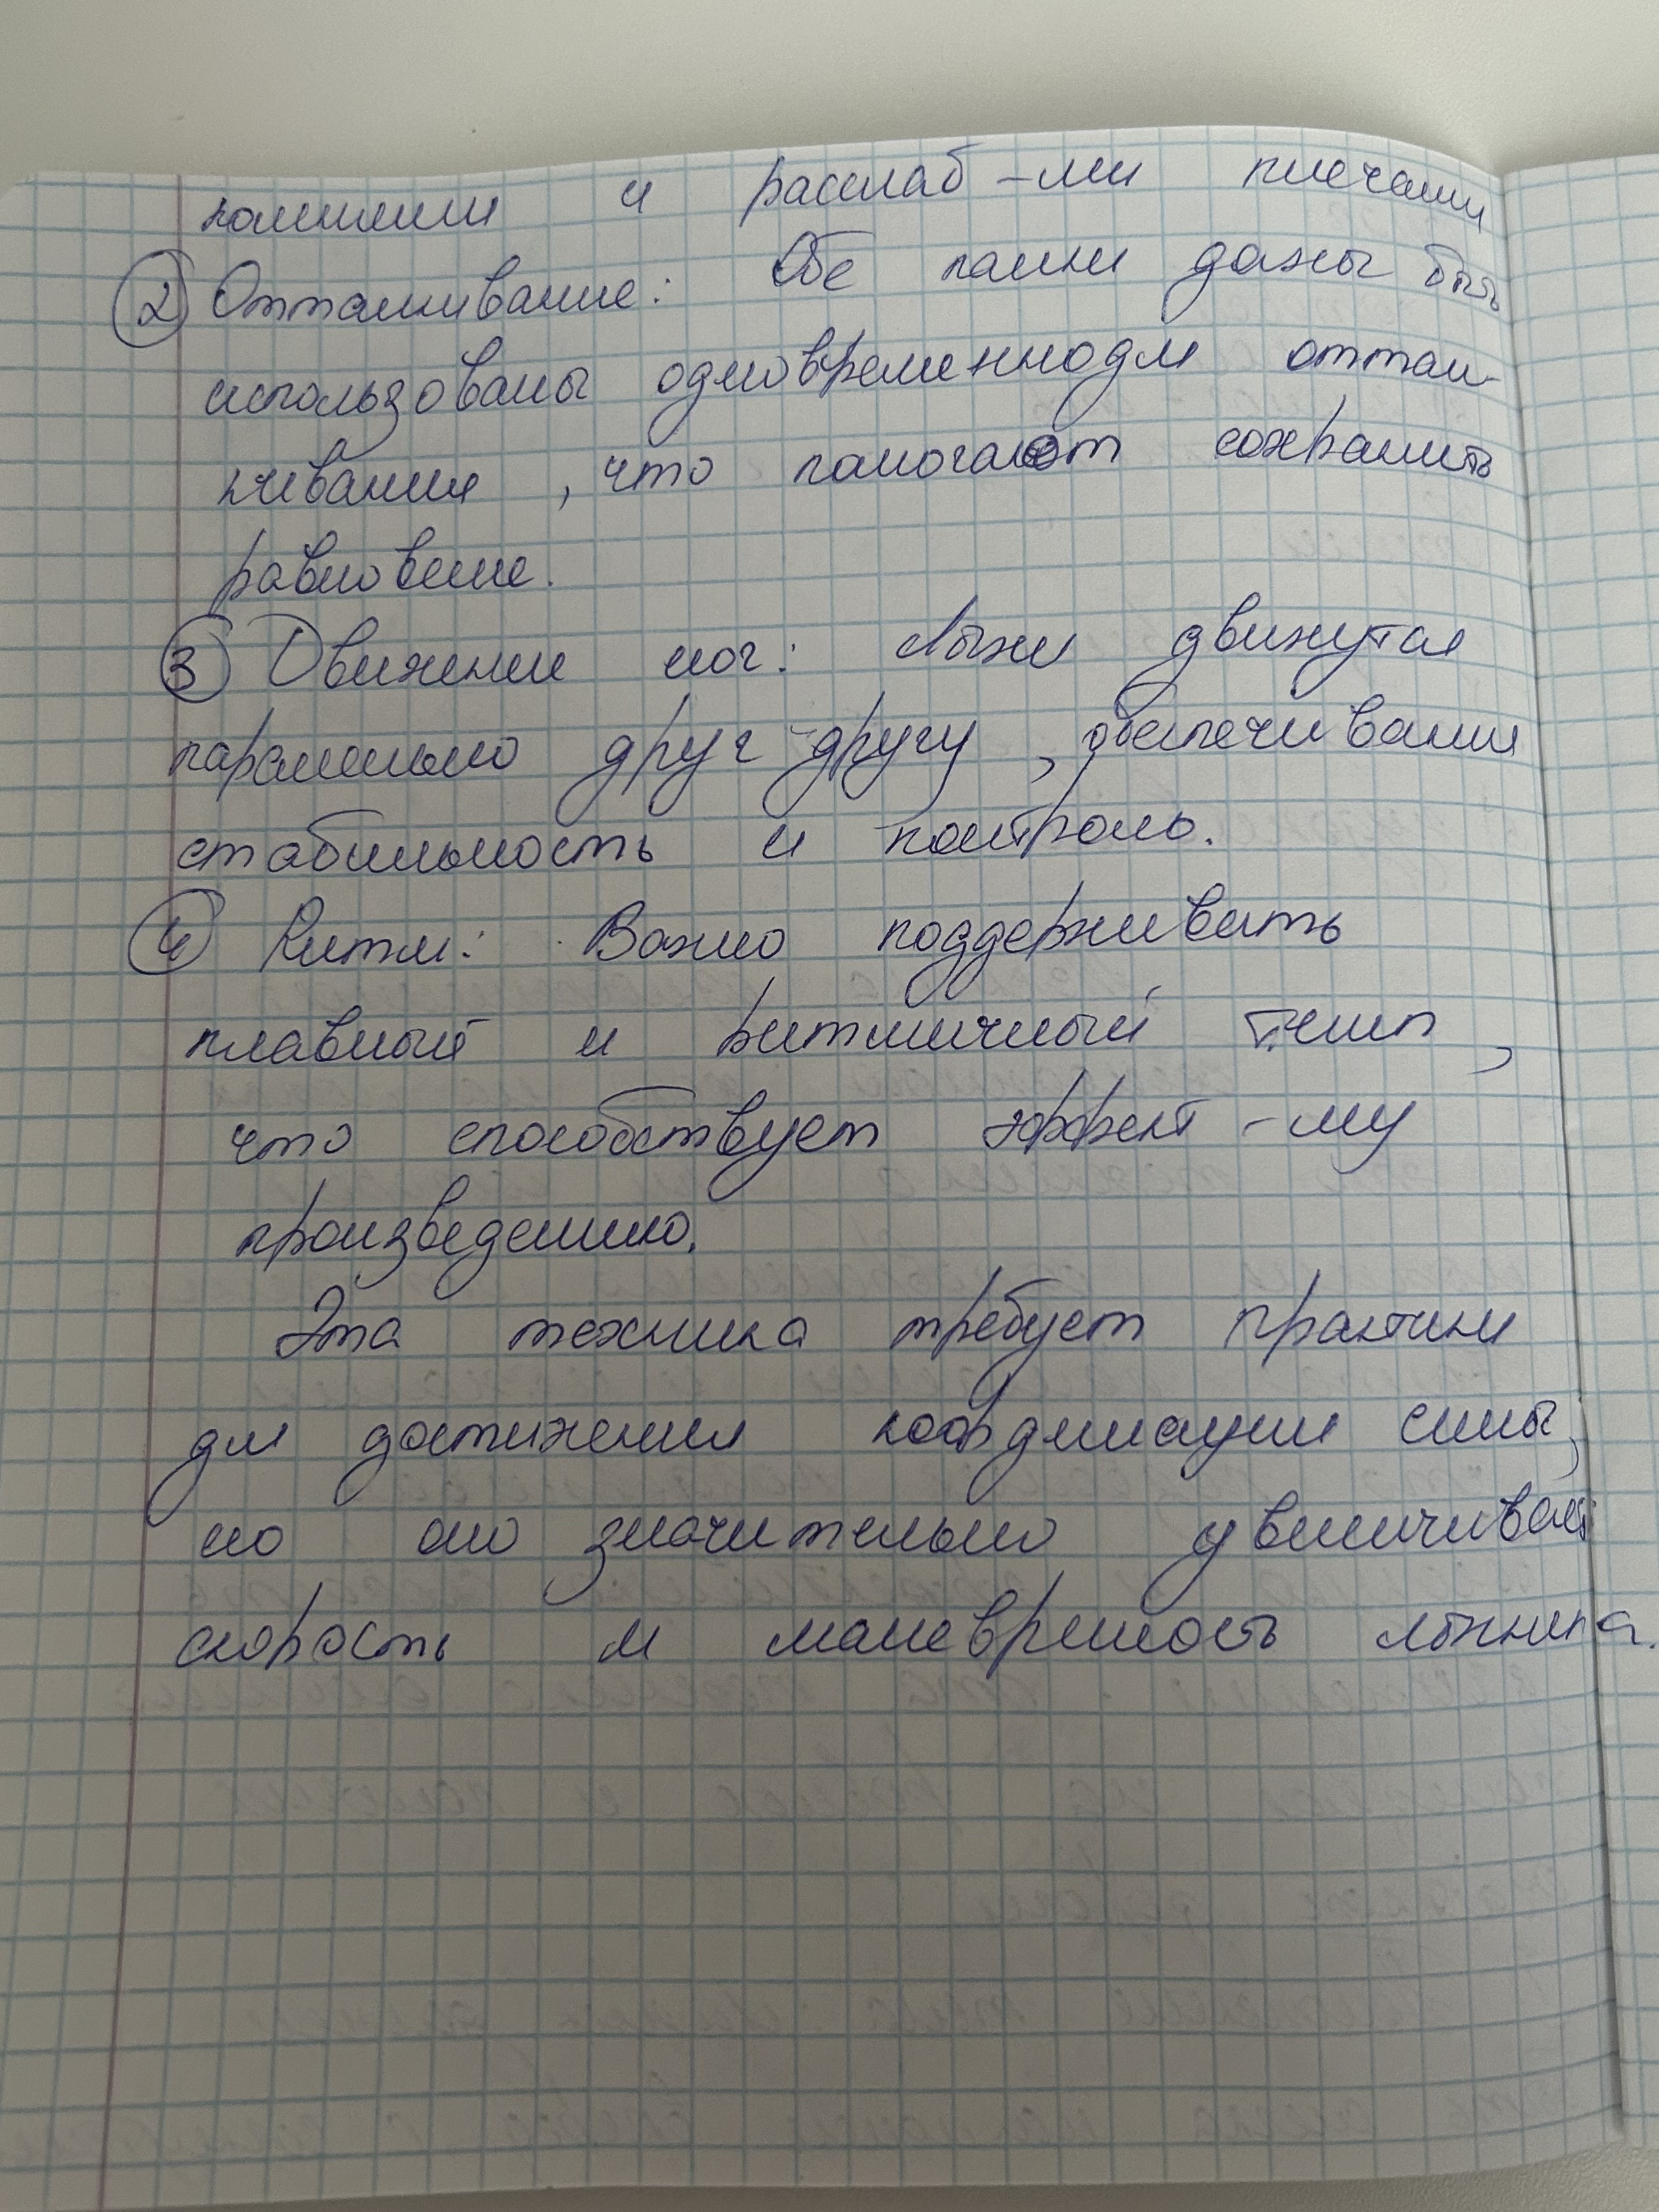 коленями и расслаб-ми плечами
② Отталкивание: Обе палки дожны быть
использованы одновременнодля оттал-
кивания, что помогают сохранить
равновеие.
③ Движении ног: Лыжи движутся
параллельно друг другу, обеспечивания
стабильность и контроль.
④ Ритм: Важно поддерживать
плавный и ритмичный темп,
что способствует эффект-му
произведению.
Эта техника требует практики
для достижения координации силы,
но оно значительно увеличивает
скорость и маневреность лыжника.